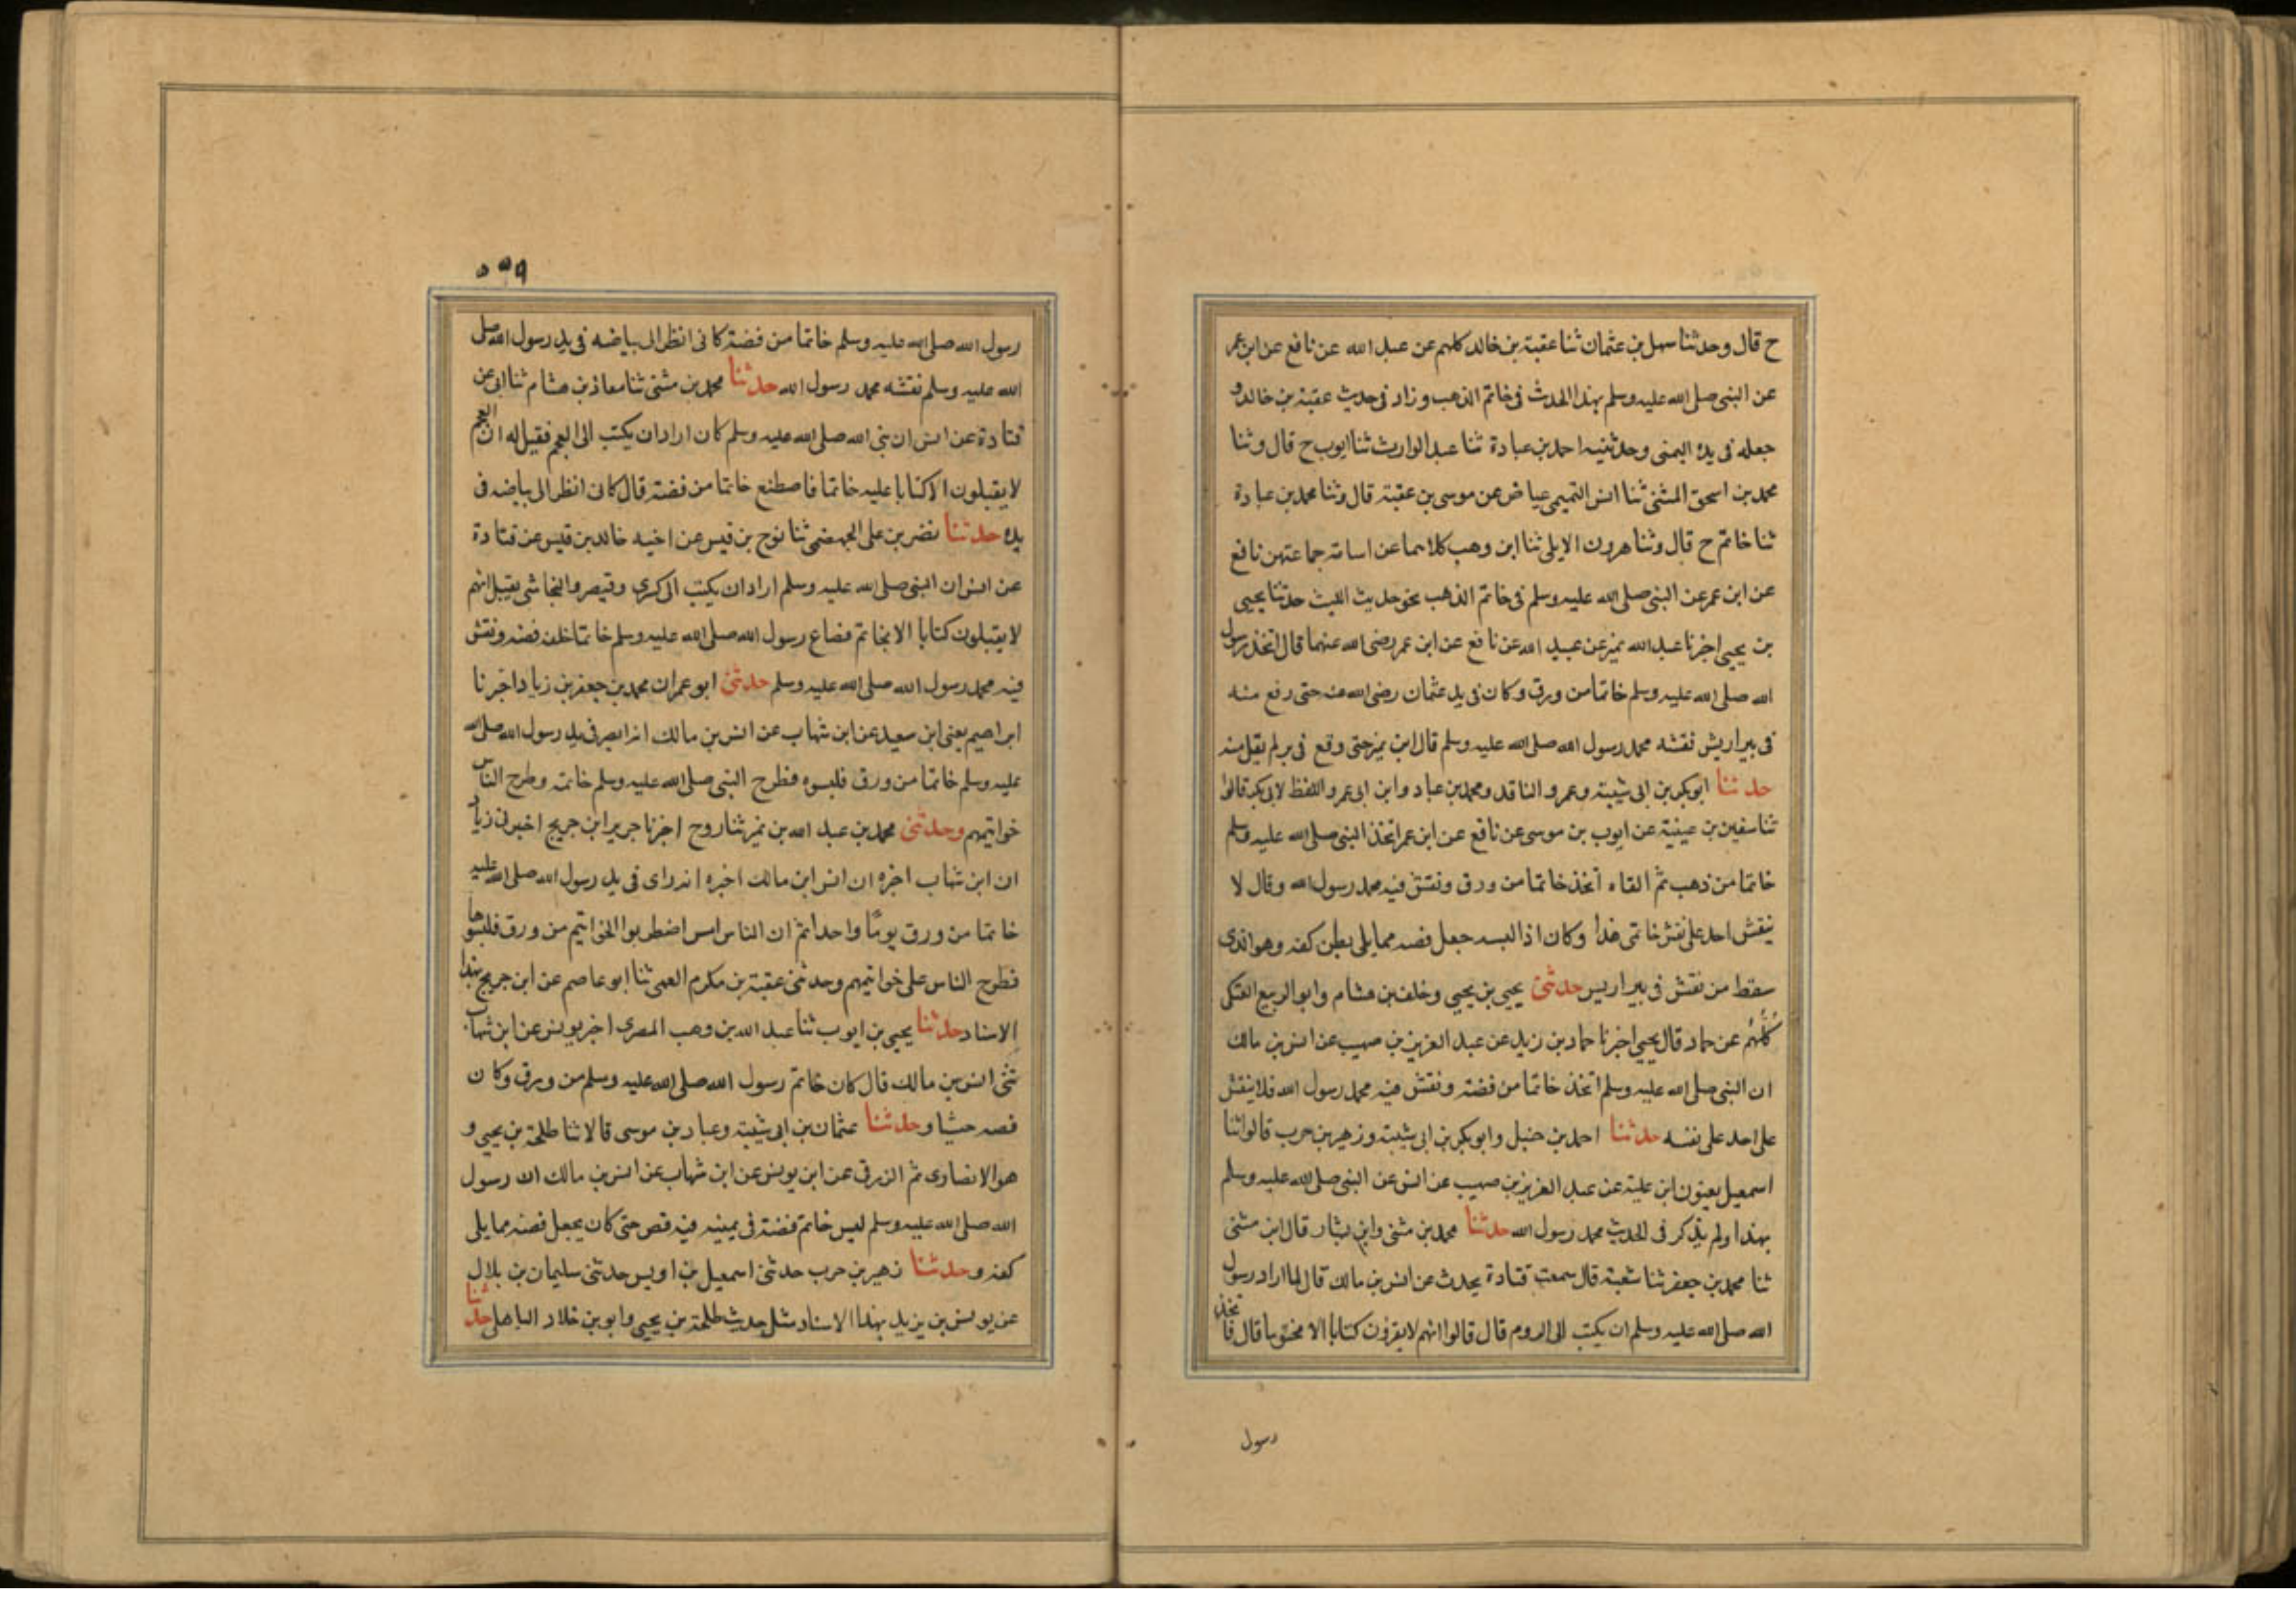 ح قال وحدثنا سهل بن عثمان ثنا عقبة بن خالد كلهم عن عبد الله عن نافع عن ابن عمر
عن النبى صلى الله عليه وسلم بهذا الحدث فى خاتم الذهب وزاد فى حديث عقبة بن خالد و
جعله فى يده اليمنى وحدثنيه احمد بن عبادة ثنا عبد الوارث ثنا ايوب ح قال وثنا
محمد بن اسحق المثنى ثنا انس التميمى عياض عن موسى بن عقبة قال وثنا محمد بن عبادة
ثنا خاتم ح قال وثنا هرون الايلى ثنا ابن وهب كلاهما عن اسامة جماعتهن نافع
عن ابن عمر عن النبى صلى الله عليه وسلم فى خاتم الذهب نحو حديث الليث حدثنا يحيى
بن يحيى اخبرنا عبد الله نمير عن عبيد الله عن نافع عن ابن عمر رضى الله عنهما قال اتخذ رسول
الله صلى الله عليه وسلم خاتما من ورق وكان فى يد عثمان رضى الله عنه حتى رفع منه
فى بير اريش نقشه محمد رسول الله صلى الله عليه وسلم قال ابن نمير حتى وقع فى بر لم يقل منه
حدثنا ابو بكر بن ابى شيبة وعمرو الناقد ومحمد بن عباد وابن ابى عمر واللفظ لابى بكر قالوا
ثنا سفين بن عيينة عن ايوب بن موسى عن نافع عن ابن عمر اتخذ النبى صلى الله عليه وسلم
خاتما من ذهب ثم القاه اتخذ خاتما من ورق ونقش فيه محمد رسول الله وقال لا
ينقش احد على نقش خاتمى هذا وكان اذا لبسه جعل فصه مما يلى بطن كفه وهو الذى
سقط من نقش فى بير اريس حدثنى يحيى بن يحيى وخلف بن هشام وابو الربيع العتكى
كُلُّهُم عن حماد قال يحيى اخبرنا حماد بن زيد عن عبد العزيز بن صهيب عن انس بن مالك
ان النبى صلى الله عليه وسلم اتخذ خاتما من فضة ونقش فيه محمد رسول الله فلا ينقش
على احد على نقشه حدثنا احمد بن حنبل وابو بكر بن ابى شيبة وزهير بن حرب قالوا ثنا
اسمعيل يعنون ابن علية عن عبد العزيز بن صهيب عن انس عن النبى صلى الله عليه وسلم
بهذا ولم يذكر فى الحديث محمد رسول الله حدثنا محمد بن مثنى وابن بشار قال ابن مثنى
ثنا محمد بن جعفر ثنا شعبة قال سمعت قتادة يحدث عن انس بن مالك قال لما اراد رسول
الله صلى الله عليه وسلم ان يكتب الى الروم قال قالوا انهم لا يقرون كتابا الا مختوما قال فاتخذ
رسول
٥٥٩
رسول الله صلى الله عليه وسلم خاتما من فضة كانى انظر الى بياضه فى يد رسول الله صلى
الله عليه وسلم نقشه محمد رسول الله حدثنا محمد بن مثنى ثنا معاذ بن هشام ثنا ابى عن
قتادة عن انس ان نبى الله صلى الله عليه وسلم كان اراد ان يكتب الى العجم فقيل له ان العجم
لا يقبلون الا كتابا عليه خاتما فاصطنع خاتما من فضة قال كان انظر الى بياضه فى
يده حدثنا نضر بن على الجهضمى ثنا نوح بن قيس عن اخيه خالد بن قيس عن قتادة
عن انس ان النبى صلى الله عليه وسلم اراد ان يكتب الى كسرى وقيصر والنجاشى يقبل انهم
لا يقبلون كتابا الا بخاتم فصاغ رسول الله صلى الله عليه وسلم خاتما خلف فضه ونقش
فيه محمد رسول الله صلى الله عليه وسلم حدثنى ابو عمران محمد بن جعفر بن زياد اخبرنا
ابراهيم يعنى ابن سعيد عن ابن شهاب عن انس بن مالك انه ابصر فى يد رسول الله صلى الله
عليه وسلم خاتما من ورق فلبسوه فطرح النبى صلى الله عليه وسلم خاتمه وطرح الناس
خواتيمهم وحدثنى محمد بن عبد الله بن نمير ثنا روح اخبرنا جرير ابن جريج اخبرنى زياد
ان ابن شهاب اخبره ان انس ابن مالك اخبره انه راى فى يد رسول الله صلى الله عليه
خاتما من ورق يومًا واحدا ثم ان الناس اس اضطربوا الخواتيم من ورق فلبسوها
فطرح الناس على خواتيمهم وحدثنى عقبة بن مكرم العمى ثنا ابو عاصم عن ابن جريج بهذا
الاسناد حدثنا يحيى بن ايوب ثنا عبد الله بن وهب المصرى اخبر يونس عن ابن شهاب
ثنى انس بن مالك قال كان خاتم رسول الله صلى الله عليه وسلم من ورق وكان
فصه حبشا وحدثنا عثمان بن ابى شيبة وعباد بن موسى قالا ثنا طلحة بن يحيى و
هو الانصارى ثم الزرقى عن ابن يونس عن ابن شهاب عن انس بن مالك ان رسول
الله صلى الله عليه وسلم لبس خاتم فضة فى يمينه فيه فص حتى كان يجعل فصه مما يلى
كفه وحدثنا زهير بن حرب حدثنى اسمعيل بن اويس حدثنى سليمان بن بلال
عن يونس بن يزيد بهذا الاسناد مثل حدث طلحة بن يحيى وابو بن خلاد الباهلى حدثنا